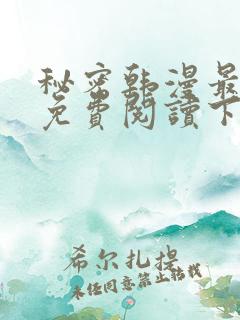 秘密韩漫最
免費閱讀下
希尔扎提
未经同意禁止转载